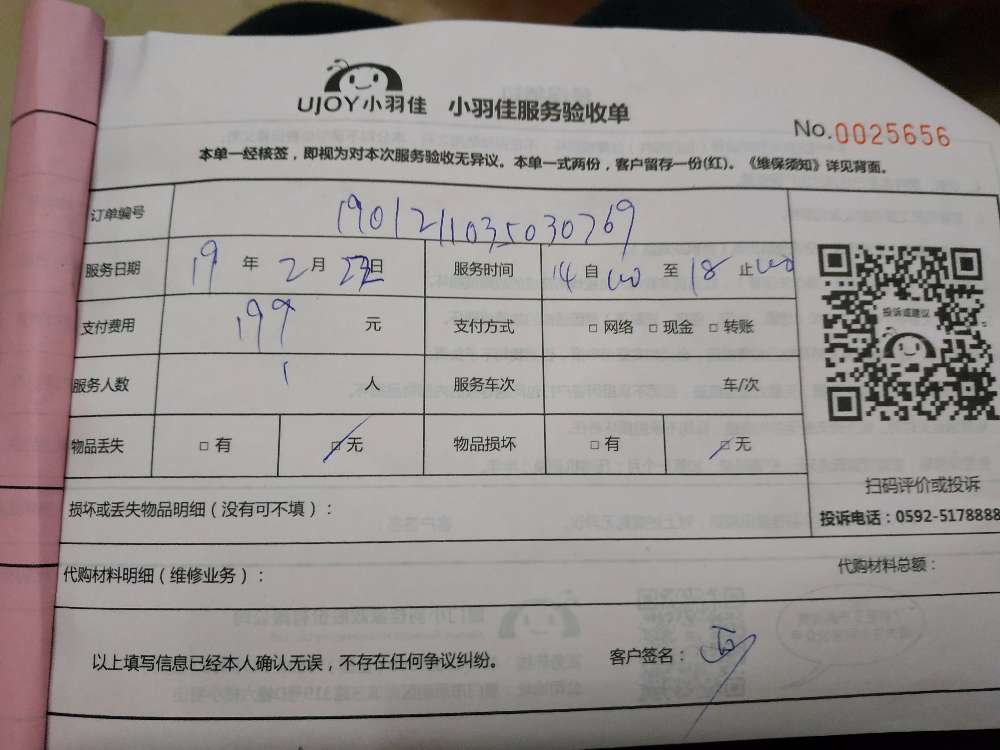 UJOY小羽佳 小羽佳服务验收单
No.0025656
本单一经核签，即视为对本次服务验收无异议。本单一式两份，客户留存一份(红)。《维保须知》详见背面。
订单编号 1901211035030769
服务日期 19 年 2 月 日 服务时间 14 自 00 至 18 止 00
支付费用 199 元 支付方式 □ 网络 □ 现金 □ 转账
服务人数 1 人 服务车次 车/次
物品丢失 □ 有 □ 无 物品损坏 □ 有 □ 无
投诉或建议
扫码评价或投诉
投诉电话：0592-5178888
损坏或丢失物品明细（没有可不填）：
代购材料明细（维修业务）： 代购材料总额：
以上填写信息已经本人确认无误，不存在任何争议纠纷。 客户签名：